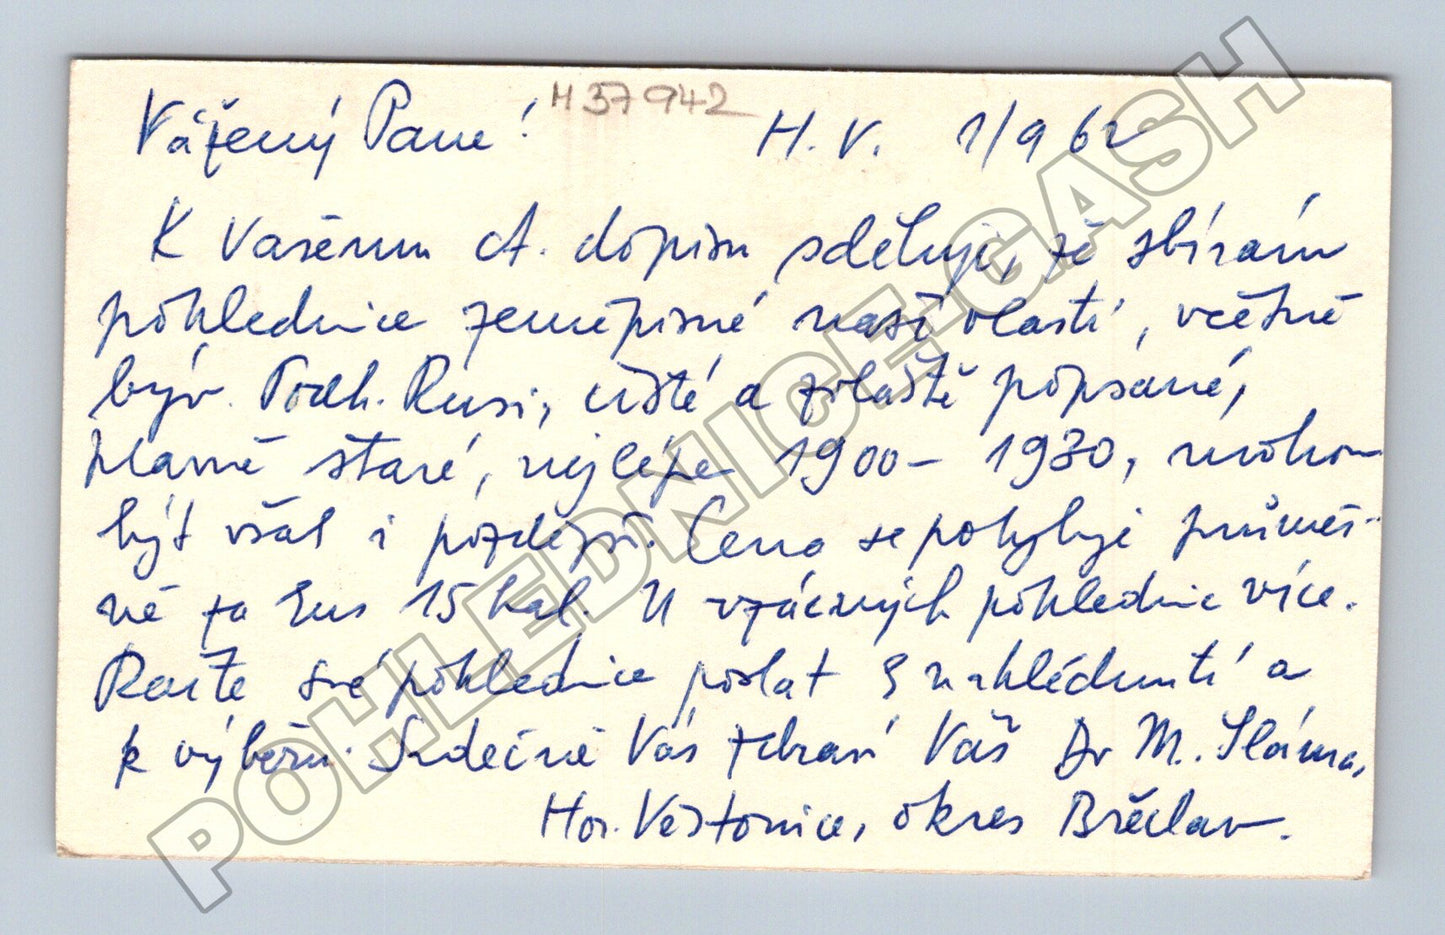 Vážený Pane! H37942 H.V. 1/9 62
K Vašemu ct. dopisu sděluji, že sbírám
pohlednice zeměpisné naší vlasti, včetně
býv. Podk. Rusi, čisté a zvláště popsané,
hlavně staré, nejlépe 1900-1930, mohou
být však i pozdější. Cena se pohybuje průměr-
ně za kus 15 hal. U vzácných pohlednic více.
Račte své pohlednice poslat k nahlédnutí a
k výběru. Srdečně Vás zdraví Váš Dr M. Sláma,
Hor. Věstonice, okres Břeclav.
POHLEDNICE-GASH